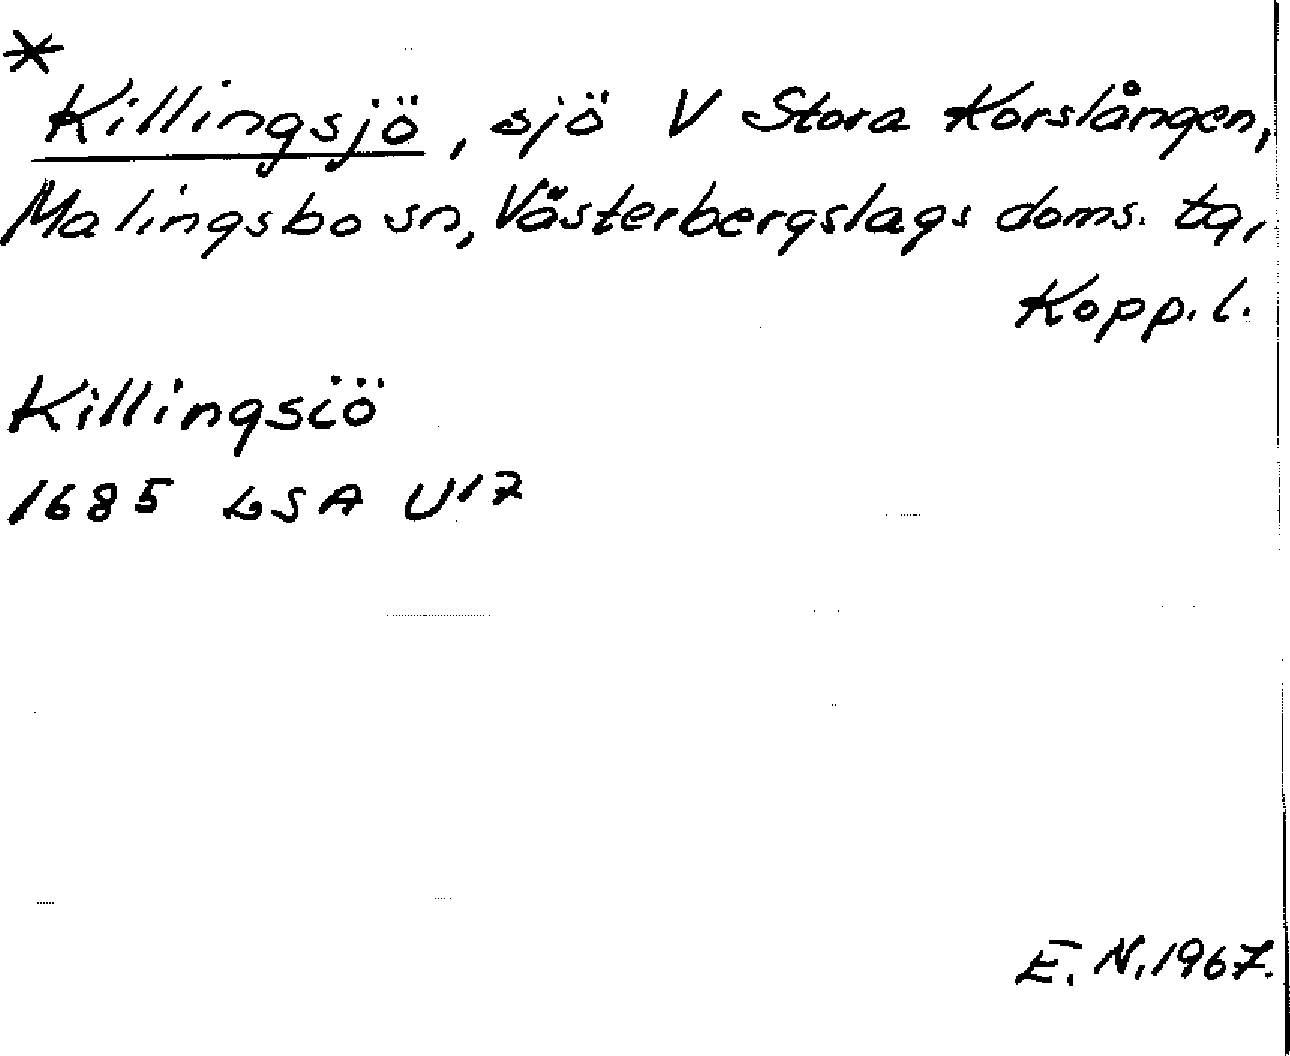 *
Killingsjö, sjö V Stora Korslången,
Malingsbo sn, Västerbergslags doms. tg,
Kopp. l.
Killingsiö
1685 LSA U17
E. N. 1967.